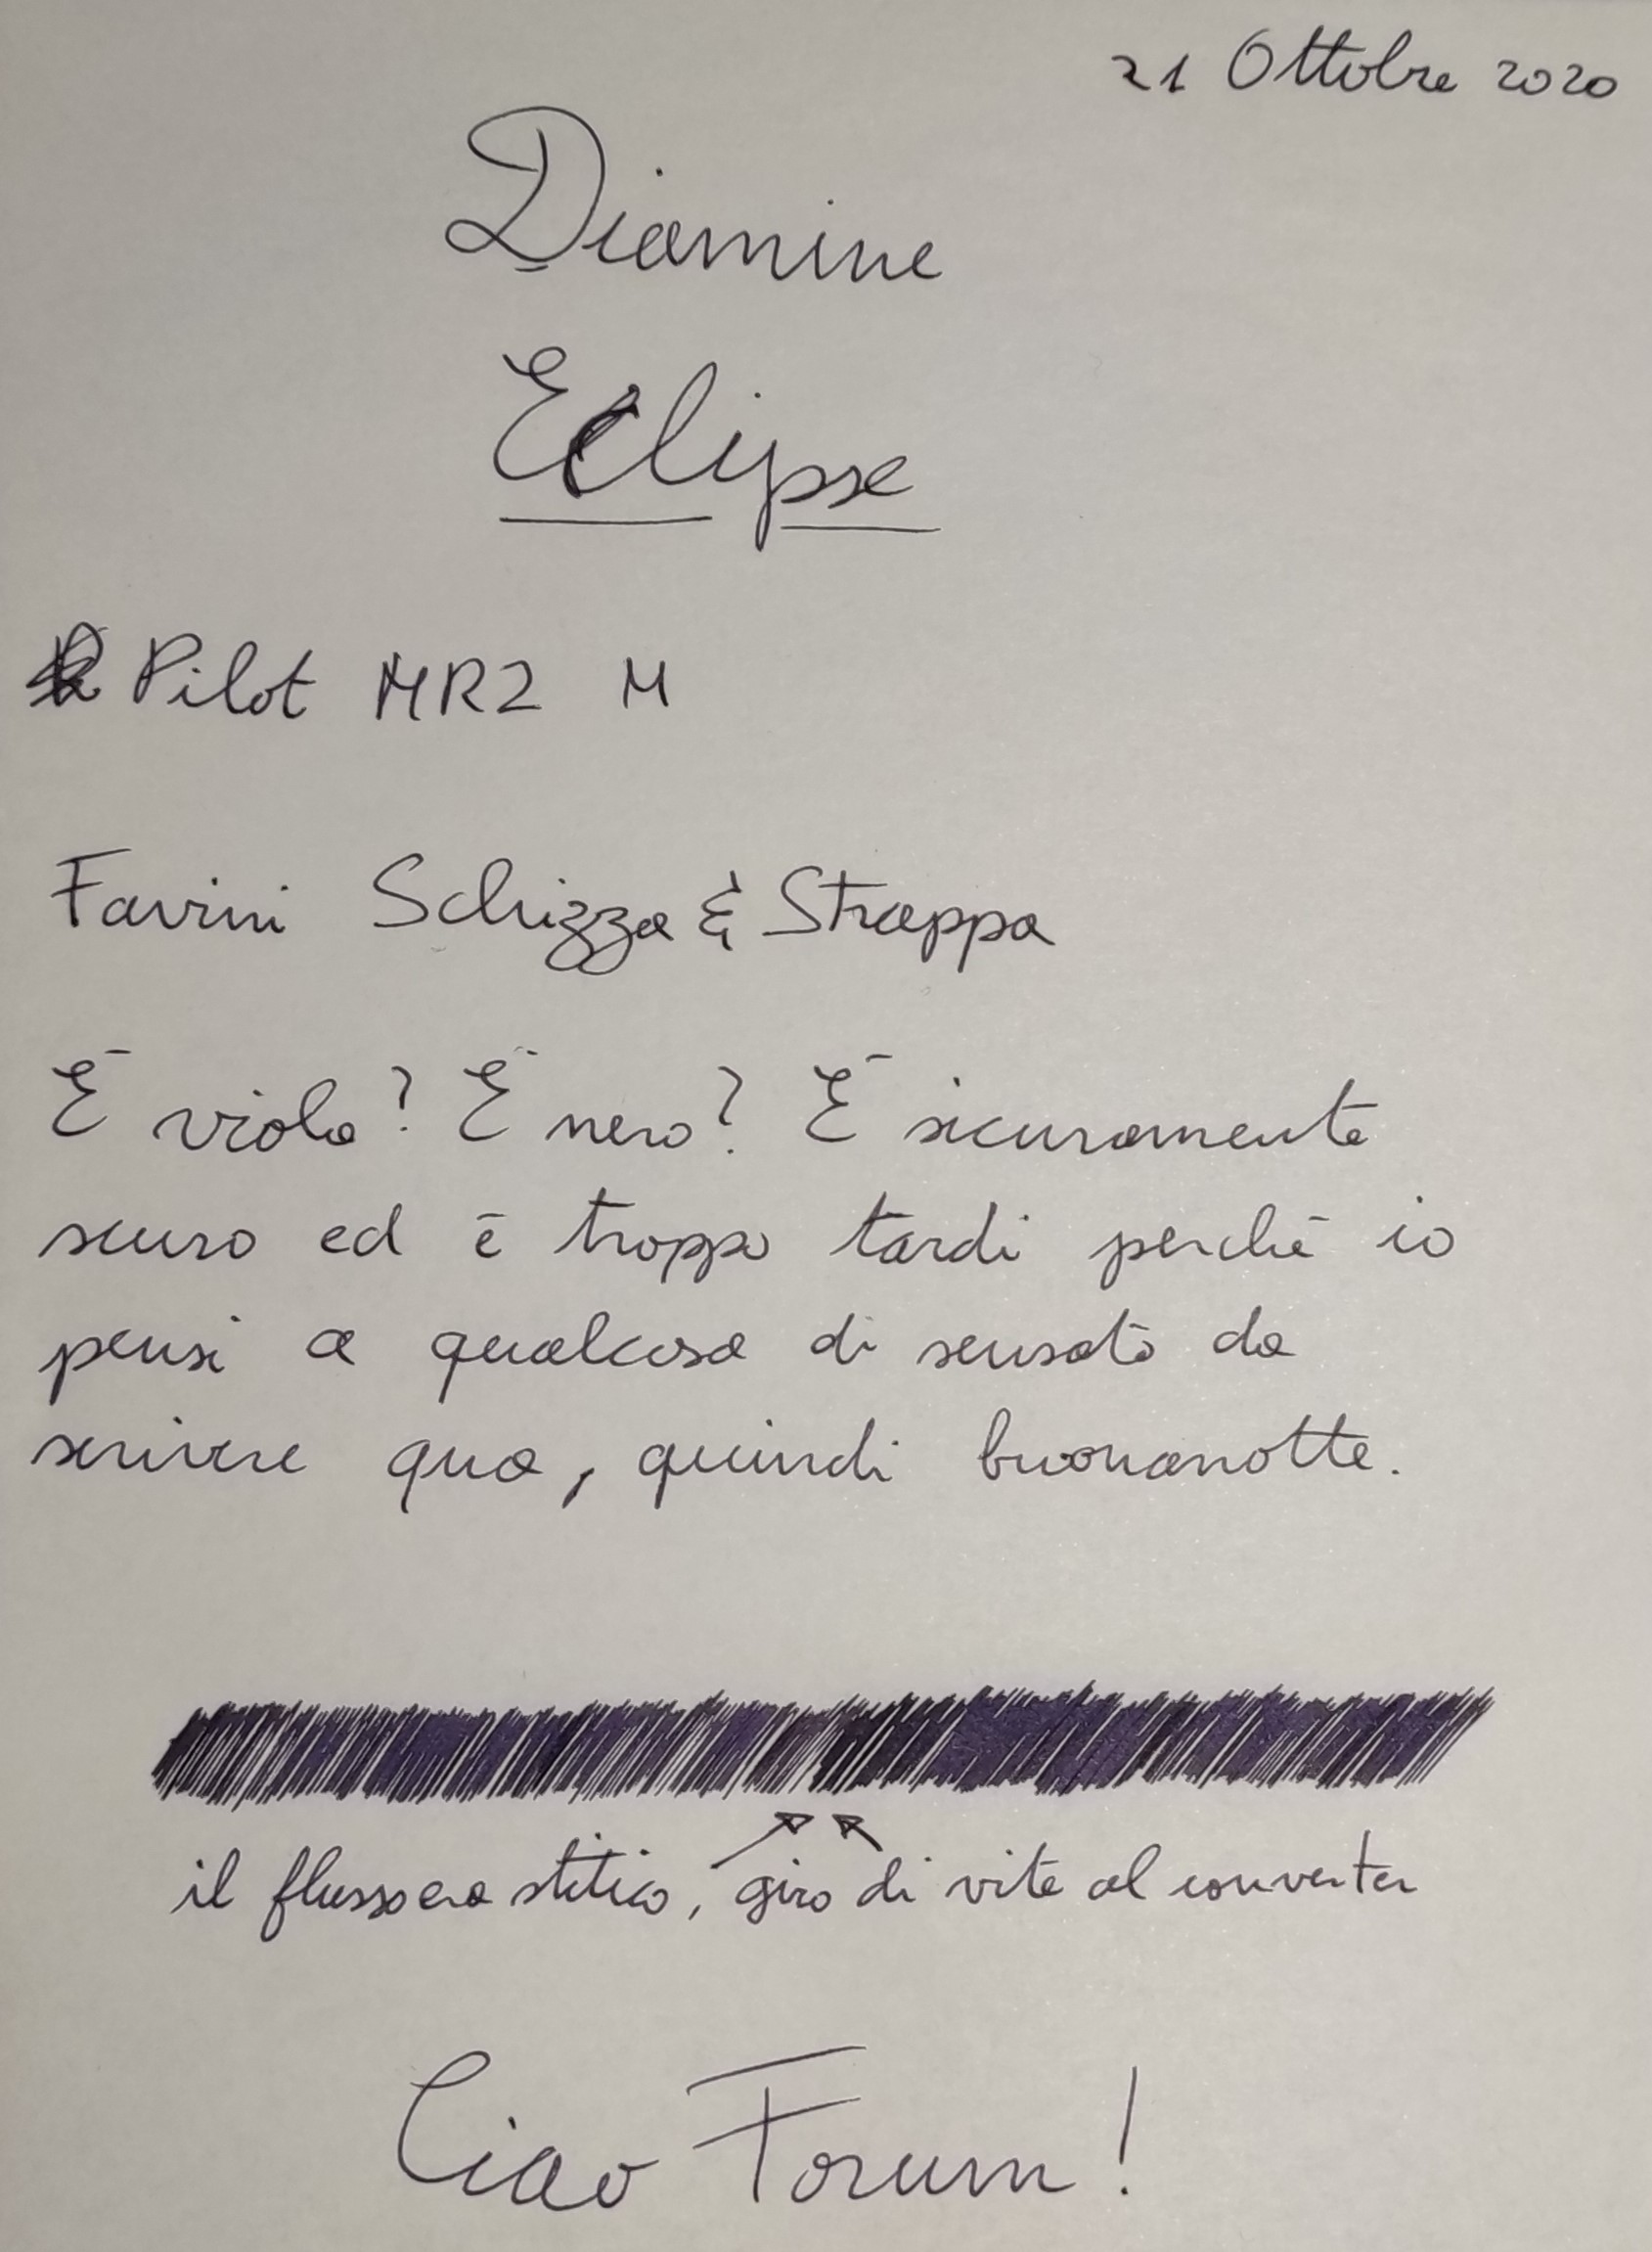 21 Ottobre 2020
Diamine
Eclipse
Pilot MR2 M
Favini Schizza & Strappa
È viola? È nero? È sicuramente
scuro ed è troppo tardi perché io
pensi a qualcosa di sensato da
scrivere qua, quindi buonanotte.
il flusso era stitico, giro di vite al converter
Ciao Forum!